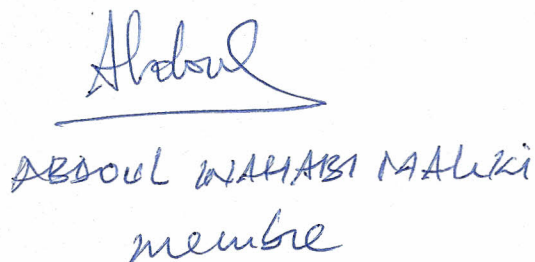 Abdoul
ABDOUL WAHABI MALIKI
membre